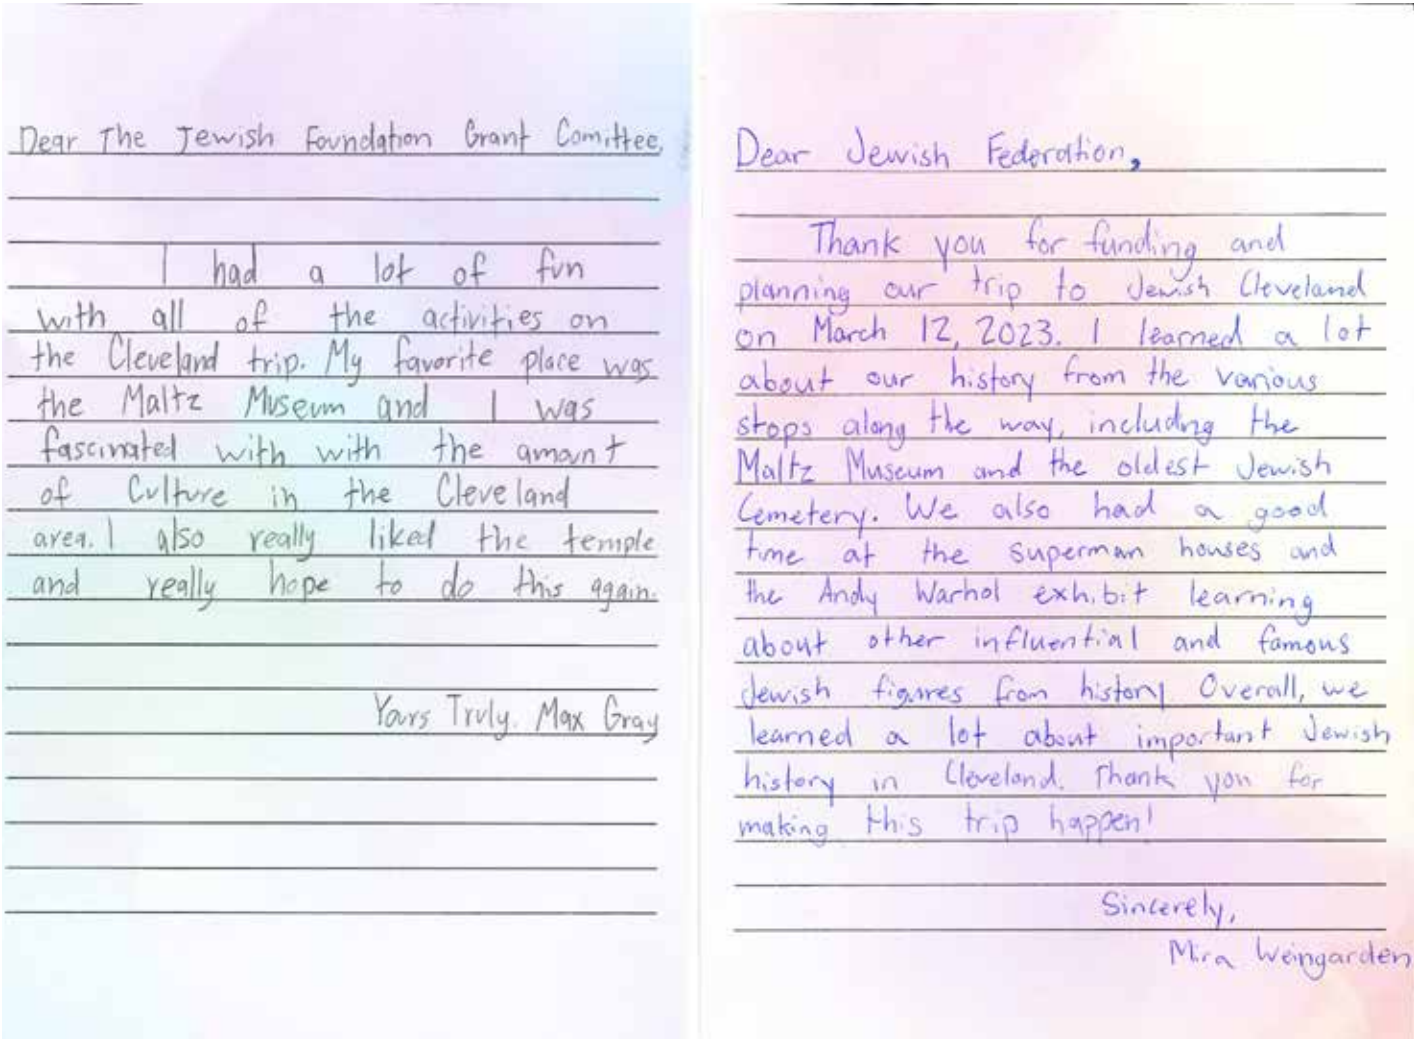 Dear The Jewish Foundation Grant Comittee,
I had a lot of fun
with all of the activities on
the Cleveland trip. My favorite place was
the Maltz Museum and I was
fascinated with with the amount
of Culture in the Cleveland
area. I also really liked the temple
and really hope to do this again.
Yours Truly. Max Gray
Dear Jewish Federation,
Thank you for funding and
planning our trip to Jewish Cleveland
on March 12, 2023. I learned a lot
about our history from the various
stops along the way, including the
Maltz Museum and the oldest Jewish
Cemetery. We also had a good
time at the superman houses and
the Andy Warhol exhibit learning
about other influential and famous
Jewish figures from history Overall, we
learned a lot about important Jewish
history in Cleveland. Thank you for
making this trip happen!
Sincerely,
Mira Weingarden